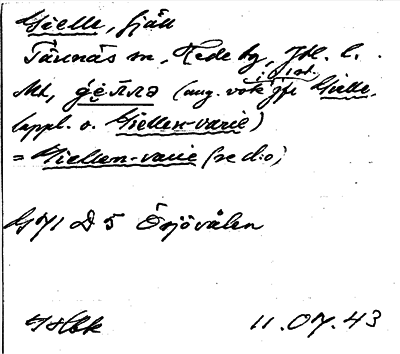 Gielle, fjäll
Tännäs sn, Hede tg, Jtl. l.
i 1 st.
Mt, (ang. vok. jfr Gielle,
lappl. o. Giellen-varie)
= Giellen-varie (se d:o)
G 71 D 5 Örjövålen
11.07.43